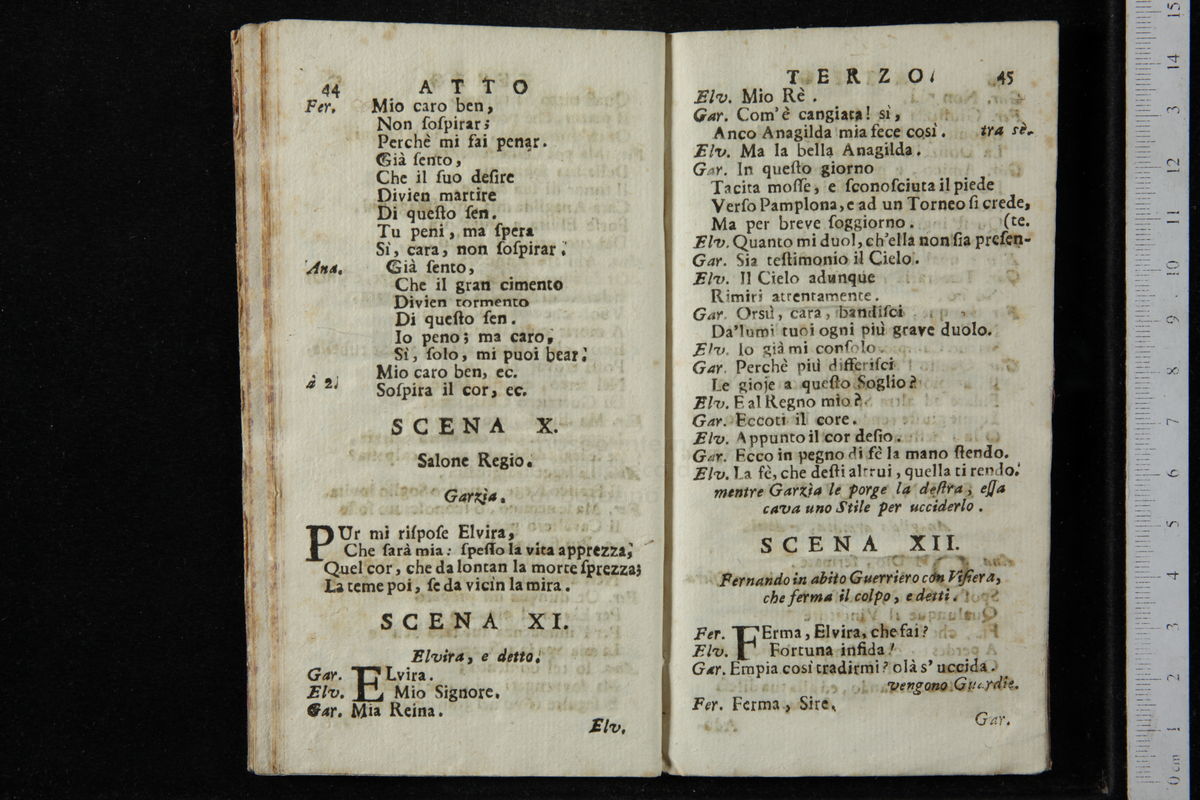 44 ATTO
Fer. Mio caro ben,
Non ſoſpirar;
Perchè mi fai penar.
Già ſento,
Che il ſuo deſire
Divien martire
Di queſto ſen.
Tu peni, ma ſpera
Sì, cara, non ſoſpirar.
Ana. Già ſento,
Che il gran cimento
Divien tormento
Di queſto ſen.
Io peno; ma caro,
Sì, ſolo, mi puoi bear.
Mio caro ben, ec.
à 2. Soſpira il cor, ec.
SCENA X.
Salone Regio.
Garzìa.
PUr mi riſpoſe Elvira,
Che ſarà mia: ſpeſſo la vita apprezza,
Quel cor, che da lontan la morte ſprezza;
La teme poi, ſe da vicin la mira.
SCENA XI.
Elvira, e detto.
Gar. ELvira.
Elv. Mio Signore.
Gar. Mia Reina.
Elv.
TERZO. 45
Elv. Mio Rè.
Gar. Com'è cangiata! sì,
Anco Anagilda mia fece così. tra sè.
Elv. Ma la bella Anagilda.
Gar. In queſto giorno
Tacita moſſe, e ſconoſciuta il piede
Verſo Pamplona, e ad un Torneo ſi crede,
Ma per breve ſoggiorno. (te.
Elv. Quanto mi duol, ch'ella non ſia preſen-
Gar. Sia teſtimonio il Cielo.
Elv. Il Cielo adunque
Rimiri attentamente.
Gar. Orsù, cara, bandiſci
Da'lumi tuoi ogni più grave duolo.
Elv. Io già mi conſolo.
Gar. Perchè più differiſci
Le gioje a queſto Soglio?
Elv. E al Regno mio?
Gar. Eccoti il core.
Elv. Appunto il cor deſio.
Gar. Ecco in pegno di fè la mano ſtendo.
Elv. La fè, che deſti altrui, quella ti rendo.
mentre Garzìa le porge la deſtra, eſſa
cava uno Stile per ucciderlo.
SCENA XII.
Fernando in abito Guerriero con Viſiera,
che ferma il colpo, e detti.
Fer. FErma, Elvira, che fai?
Elv. Fortuna infida!
Gar. Empia così tradirmi? olà s'uccida.
vengono Guardie.
Fer. Ferma, Sire.
Gar.